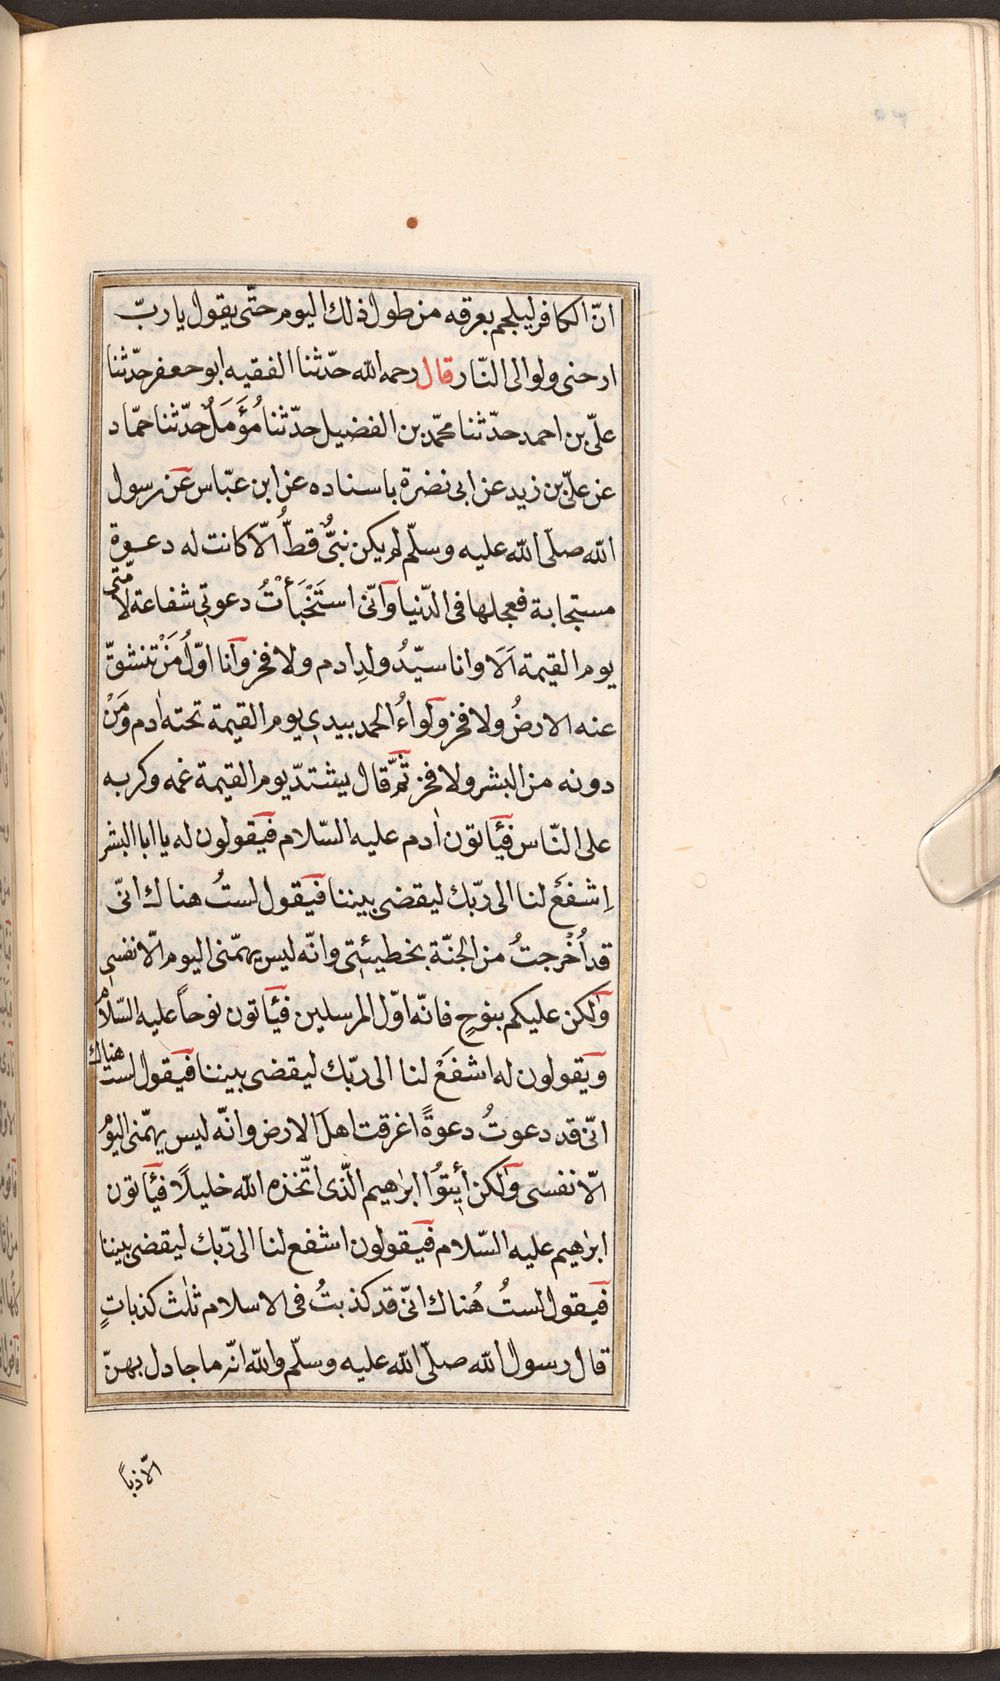 انّ الكافر ليلجم بعرقه من طول ذلك اليوم حتّى يقول يا ربّ
ارحنى ولو الى النّار قال رحمه الله حدّثنا الفقيه ابو جعفر حدّثنا
علىّ بن احمد حدّثنا محمّد بن الفضيل حدّثنا مُؤَمَلٌ حدّثنا حمّاد
عن علىّ بن زيد عن ابى نضرة باسناده عن ابن عبّاس عن رسول
الله صلّى الله عليه وسلّم لم يكن نبىٌّ قطُّ الّا كانت له دعوة
مستجابة فعجلها فى الدّنيا وانّى استَخْبَأْتُ دعوتى شفاعة لامّتى
يوم القيمة اَلَا وانا سيّدُ ولدِ ادم ولا فخر وانا اوّلُ مَنْ تنشقّ
عنه الارضُ ولا فخر ولواءُ الحمد بيدى يوم القيمة تحته اٰدم ومَنْ
دونه من البشر ولا فخر ثمَّ قال يشتدّ يوم القيمة غمه وكربه
على النّاس فيأتون اٰدم عليه السّلام فيقولون له يا ابا البشر
اِشفَعْ لنا الى ربّك ليقضى بيننا فيقول لستُ هناك انّى
قد اُخْرجتُ من الجنّة بخطيئتى وانّه ليس يهمّنى اليوم الّا نفسى
ولكن عليكم بنوحٍ فانّه اوّل المرسلين فيأتون نوحاً عليه السّلام
ويقولون له اشفَعْ لنا الى ربّك ليقضى بيننا فيقول لست هناك
انّى قد دعوتُ دعوةً اغرقت اهلَ الارض وانّه ليس يهمّنى اليومُ
الّا نفسى ولكن أيتوُا ابرٰهيم الّذى اتّخذه الله خليلًا فيأتون
ابرٰهيم عليه السّلام فيقولون اشفع لنا الى ربّك ليقضى بيننا
فيقول لستُ هُناك انّى قد كذبتُ فى الاسلام ثلٰث كذباتٍ
قال رسول الله صلّى الله عليه وسلّم والله انّه ما جادل بهنّ
الّا ذبّاً